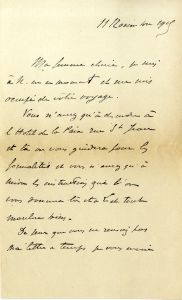 11 Novembre 1915
Ma femme chérie, je suis
à N. en ce moment et me suis
occupé de votre voyage.
Vous n'aurez qu'à descendre à
l'Hôtel de la Paix rue St
et là on vous guidera pour les
formalités et vous n'aurez qu'à
suivre les instructions que l'on
vous donnera là et tout
marchera bien.
De peur que vous ne receviez pas
ma lettre à temps je vous